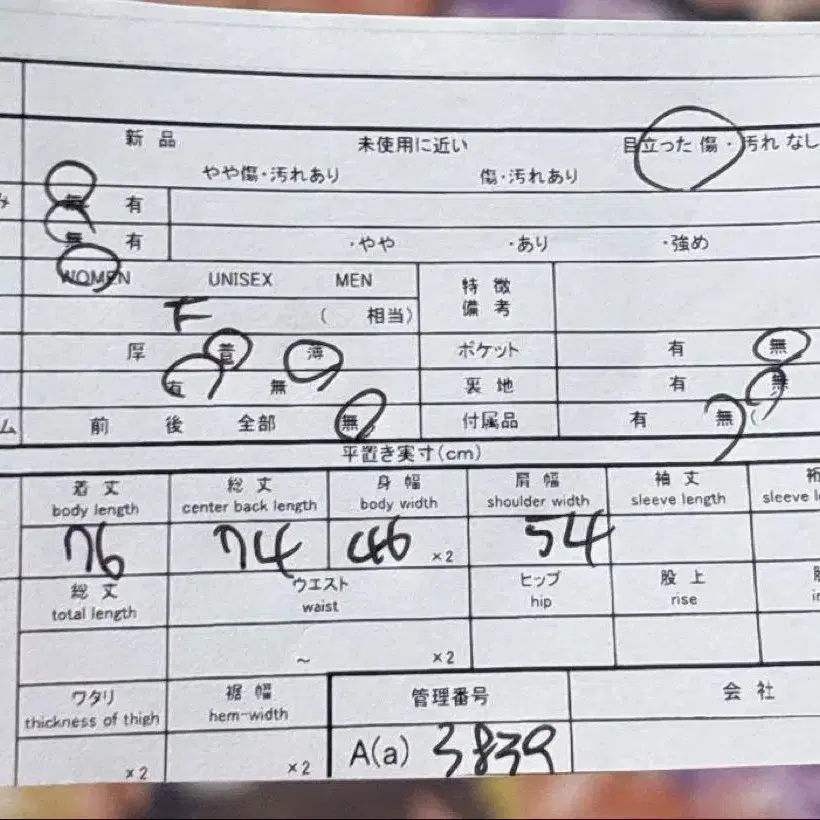 新品 未使用に近い 目立った傷・汚れなし
やや傷・汚れあり 傷・汚れあり
み 無 有
無 有 ・やや ・あり ・強め
WOMEN UNISEX MEN 特徴
F ( 相当) 備考
厚 普 薄 ポケット 有 無
有 無 裏地 有 無
ム 前 後 全部 無 付属品 有 無 (
平置き実寸(cm)
着丈 総丈 身幅 肩幅 袖丈 裄
body length center back length body width shoulder width sleeve length sleeve l
76 74 46 ×2 54
総丈 ウエスト ヒップ 股上
total length waist hip rise
~ ×2
ワタリ 裾幅 管理番号 会社
thickness of thigh hem-width
×2 ×2 A(a) 3839